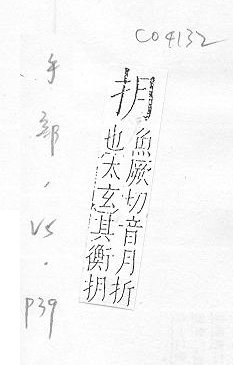 C04132
手部, VS. P39
抈
魚厥切音月折
也太玄其衡抈